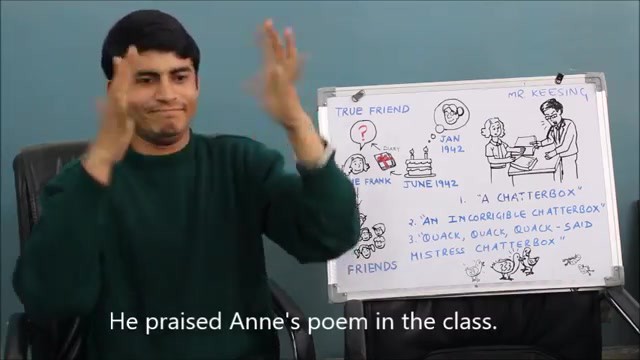 TRUE FRIEND
MR KEESING
?
DIARY
JAN
1942
NE FRANK
JUNE 1942
1. "A CHATTERBOX"
2. "AN INCORRIGIBLE CHATTERBOX"
3. "QUACK, QUACK, QUACK - SAID
MISTRESS CHATTERBOX"
FRIENDS
He praised Anne's poem in the class.